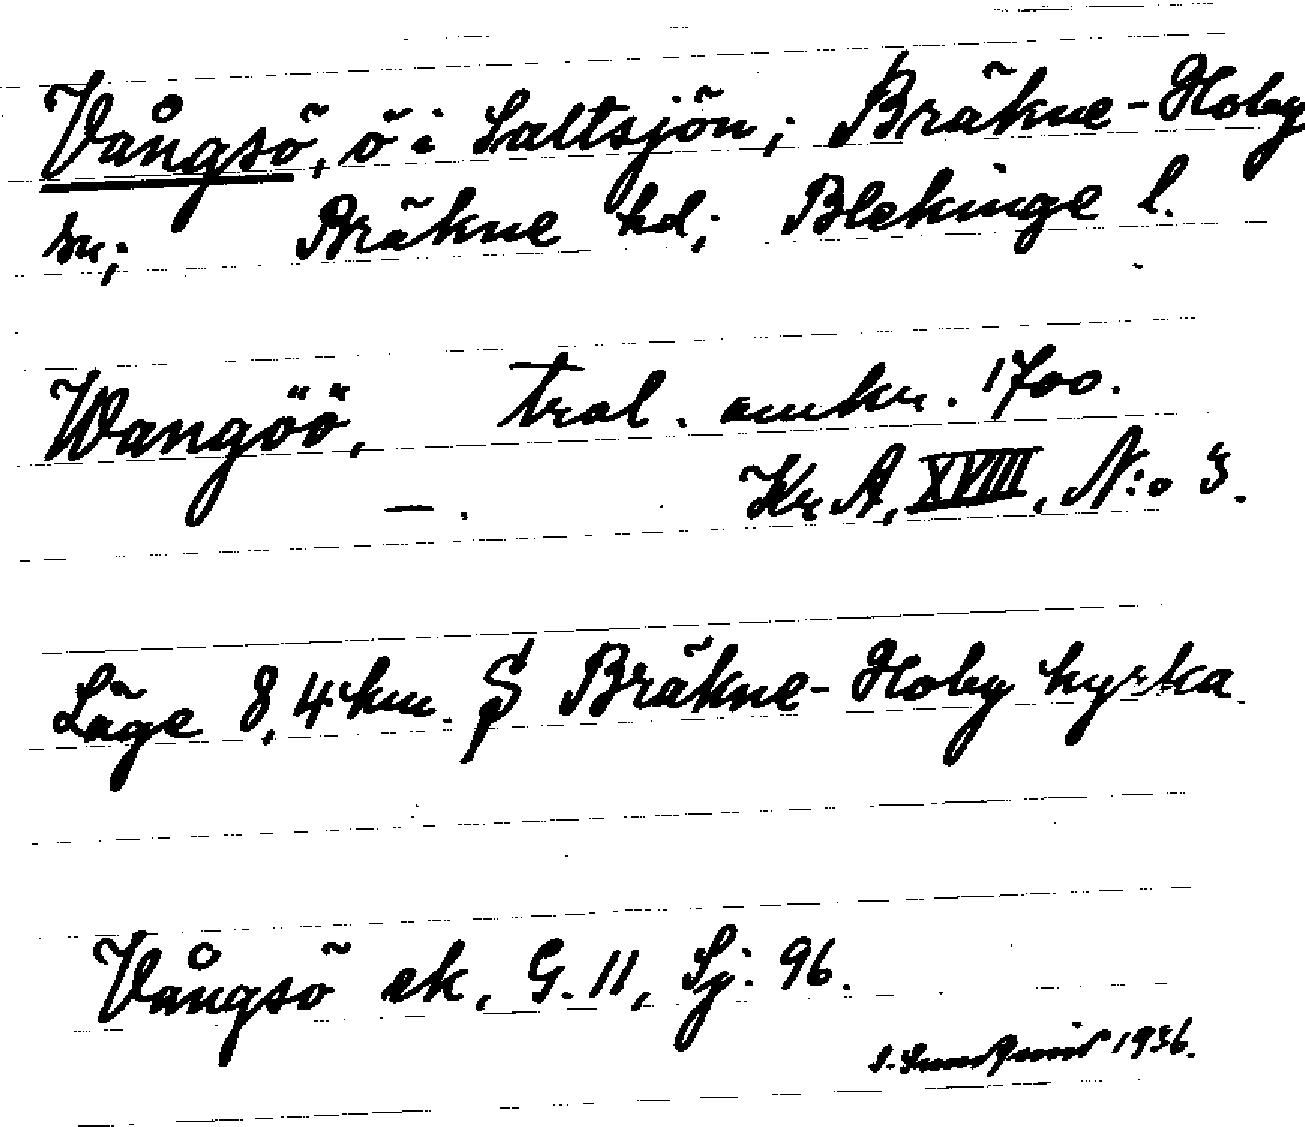 Vångsö, ö i Saltsjön; Bräkne-Hoby
sn; Bräkne hd; Blekinge l.
Wangöö, trol. omkr. 1700.
—. Kr. A, XVIII, N:o 3.
Läge 8,4 km. S Bräkne-Hoby kyrka.
Vångsö ek. G. 11, Sj. 96.
1936.